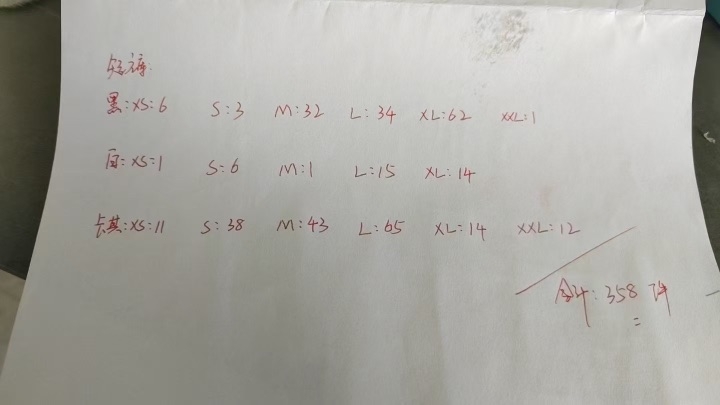 短裤:
黑:XS:6 S:3 M:32 L:34 XL:62 XXL:1
:XS:1 S:6 M:1 L:15 XL:14
卡其:XS:11 S:38 M:43 L:65 XL:14 XXL:12
合计:358件